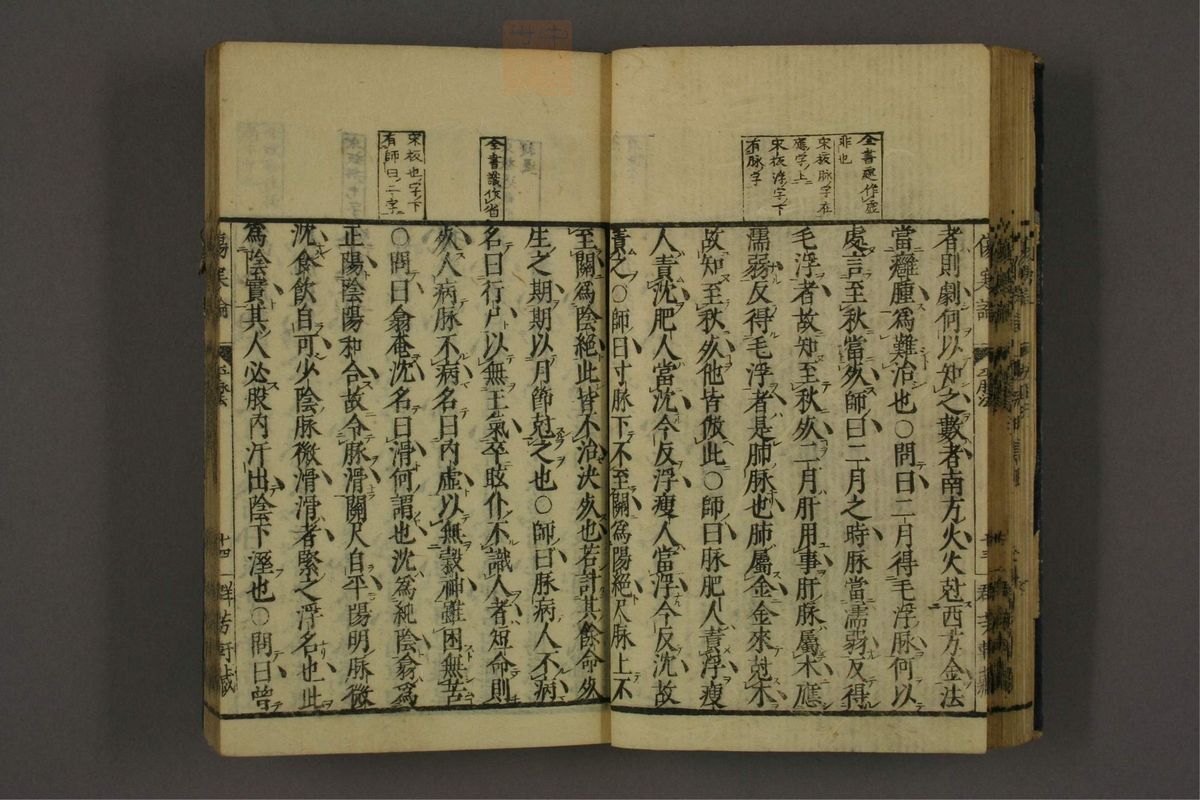 全書遲作虛
非也
宋板脉字在
應字上
宋板浮字下
有脉字
者則劇何以知之數者南方火火尅西方金法
當癰腫爲難治也○問曰二月得毛浮脉何以
處言至秋當死師曰二月之時脉當濡弱反得
毛浮者故知至秋死二月肝用事肝脉屬木應
濡弱反得毛浮者是肺脉也肺屬金金來尅木
故知至秋死他皆倣此○師曰脉肥人責浮瘦
人責沈肥人當沈今反浮瘦人當浮今反沈故
責之○師曰寸脉下不至關爲陽絕尺脉上不
傷寒論
平脉法
十三
全書識作省
宋板也字下
有師曰二字
至關爲陰絕此皆不治決死也若計其餘命死
生之期期以月節尅之也○師曰脉病人不病
名曰行尸以無王氣卒眩仆不識人者短命則
死人病脉不病名曰内虛以無穀神雖困無苦
○問曰翕奄沈名曰滑何謂也沈爲純陰翕爲
正陽陰陽和合故令脉滑關尺自平陽明脉微
沈食飲自可少陰脉微滑滑者緊之浮名也此
爲陰實其人必股内汗出陰下溼也○問曰曾
傷寒論
平脉法
十四
群芳軒藏